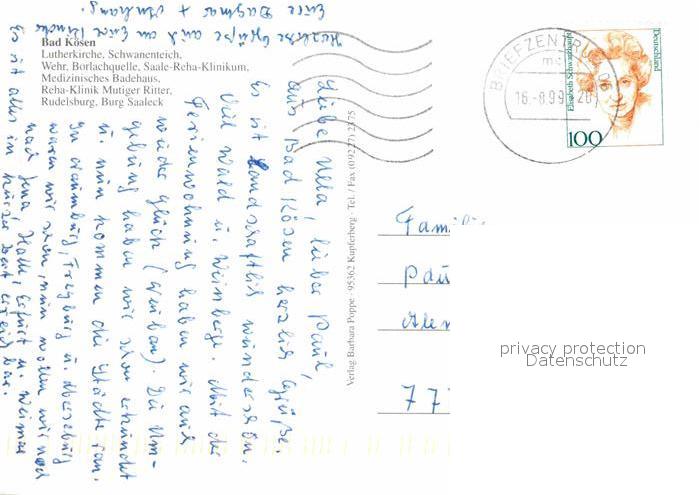 Bad Kösen
Lutherkirche, Schwanenteich,
Wehr, Borlachquelle, Saale-Reha-Klinikum,
Medizinisches Badehaus,
Reha-Klinik Mutiger Ritter,
Rudelsburg, Burg Saaleck
Liebe Ulla, lieber Paul,
aus Bad Kösen herzlich Grüße.
Es ist landschaftlich wunderschön.
Viel Wald u. Weinberge. Mit der
Ferienwohnung haben wir auch
wieder Glück (). Die Um-
gebung haben wir schon erkundet
u. nun kommen die Städte ran.
In Naumburg, Freyburg u. Merseburg
waren wir schon, nun wollen wir noch
nach Jena, Halle, Erfurt u. Weimar
Es ist alles in kurzer Zeit erreichbar.
Herzliche Grüße auch an Eure
Eure Dagmar +
Verlag Barbara Poppe · 95362 Kupferberg · Tel. / Fax (09227) 2375
BRIEFZENTRUM
16.-8.99
20
Deutschland
Elisabeth Schwarzhaupt
100
Fam
Pau
77
privacy protection
Datenschutz